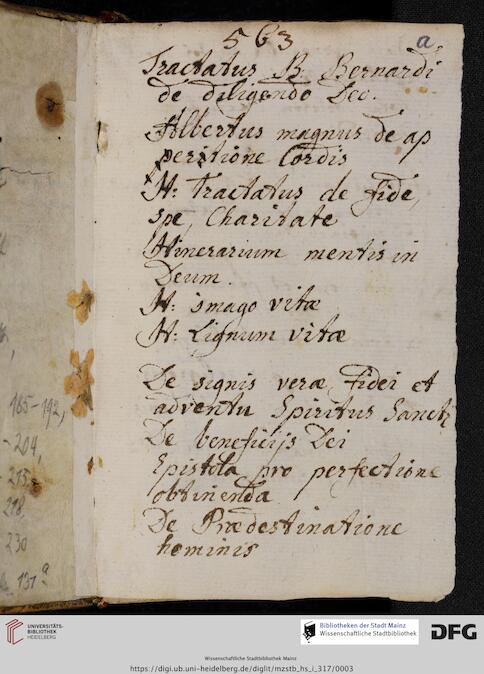 563
a
Tractatus B. Bernardi
de diligendo Deo.
Albertus magnus de ap
peritione Cordis
It: Tractatus de fide,
spe, Charitate
Itinerarium mentis in
Deum.
It: imago vitæ
It: Lignum vitæ
De signis veræ fidei et
adventu Spiritus Sancti
De beneficijs Dei
Epistola pro perfectione
obtinenda
De Prædestinatione
hominis
165-192,
-204,
215,
218,
230
131a
UNIVERSITÄTS-
BIBLIOTHEK
HEIDELBERG
Bibliotheken der Stadt Mainz
Wissenschaftliche Stadtbibliothek
DFG
Wissenschaftliche Stadtbibliothek Mainz
https://digi.ub.uni-heidelberg.de/diglit/mzstb_hs_i_317/0003